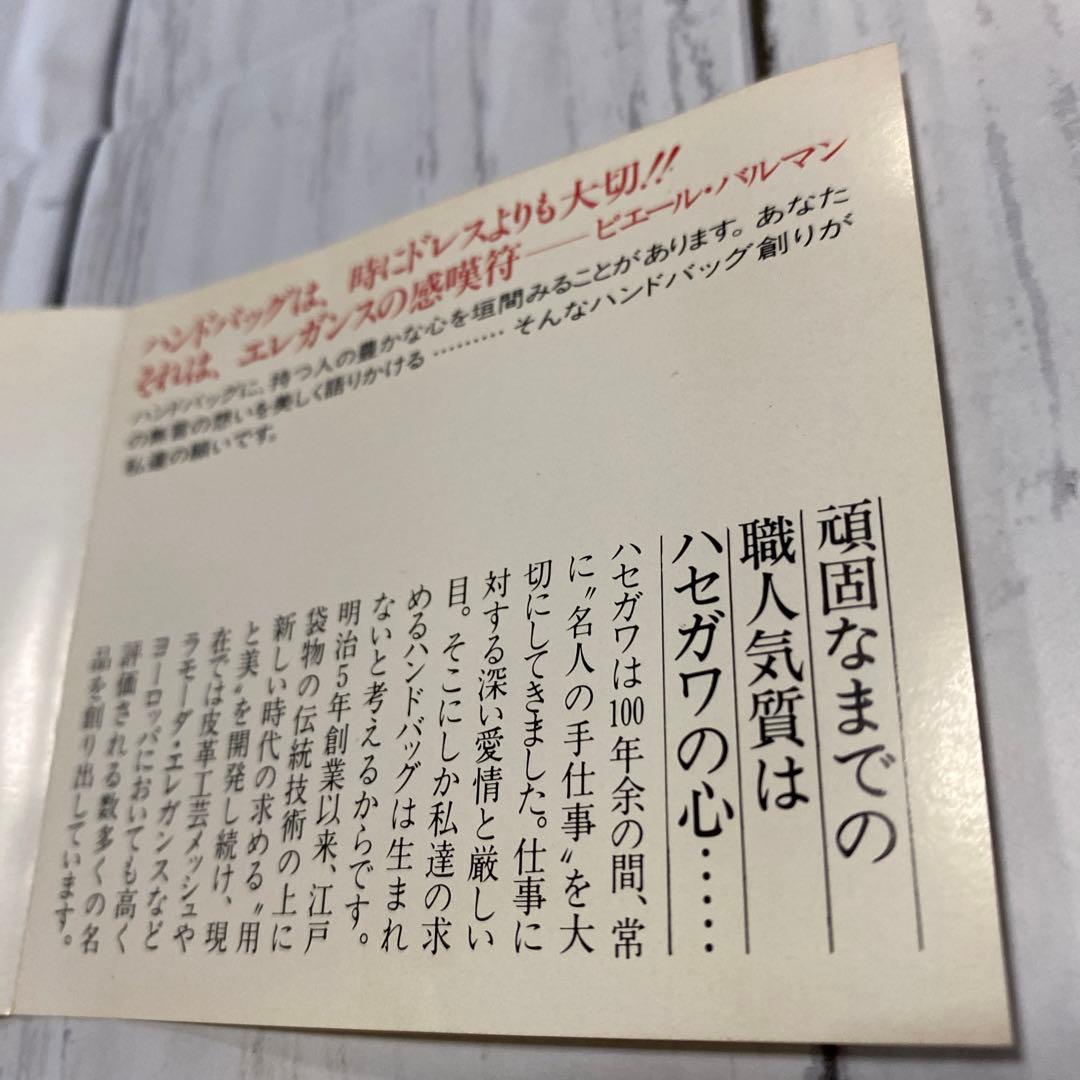 ハンドバッグは、時にドレスよりも大切!!
それは、エレガンスの感嘆符——ピエール・バルマン
ハンドバッグに、持つ人の豊かな心を垣間みることがあります。あなた
の無言の想いを美しく語りかける………そんなハンドバッグ創りが
私達の願いです。
頑固なまでの
職人気質は
ハセガワの心……
ハセガワは100年余の間、常
に〝名人の手仕事〟を大
切にしてきました。仕事に
対する深い愛情と厳しい
目。そこにしか私達の求
めるハンドバッグは生まれ
ないと考えるからです。
明治5年創業以来、江戸
袋物の伝統技術の上に
新しい時代の求める〝用
と美〟を開発し続け、現
在では皮革工芸メッシュや
ラモーダ・エレガンスなど
ヨーロッパにおいても高く
評価される数多くの名
品を創り出しています。